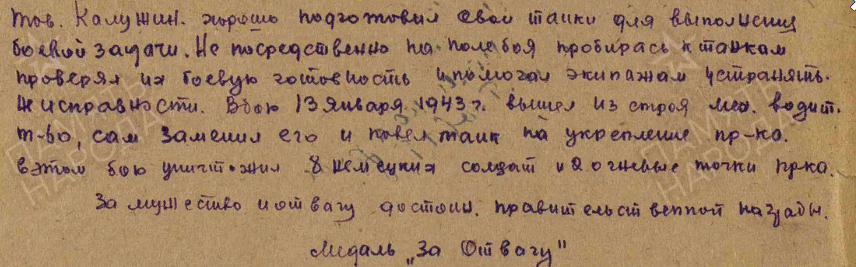 Тов. Калужин. хорошо подготовил свои танки для выполнения
боевой задачи. Не посредственно на поле боя пробирась к танкам
проверял их боевую готовность и помогал экипажам устранять.
Неисправности. В бою 13 января 1943 г. вышел из строя мех. водит.
т-во, сам заменил его и повел танк на укрепление пр-ка.
в этом бою уничтожил 8 немецких солдат и 2 огневые точки пр-ка.
За мужество и отвагу достоин. правительственной награды.
Медаль „За Отвагу"
ПАМЯТЬ НАРОДА